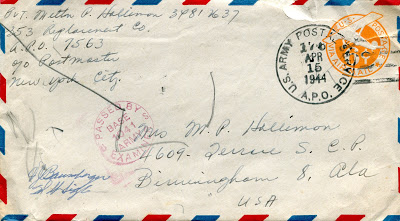 Pvt. Milton P. Hallimon 34817637
353 Replacement Co.
A.P.O. 7563
c/o Postmaster
New York City
U.S. ARMY POSTAL SERVICE
APR
15
1944
A.P.O.
PASSED BY
BASE
ARMY
EXAMINER
Mrs M. P. Hallimon
4609 - Terrace S. C. P.
Birmingham 8, Ala
USA